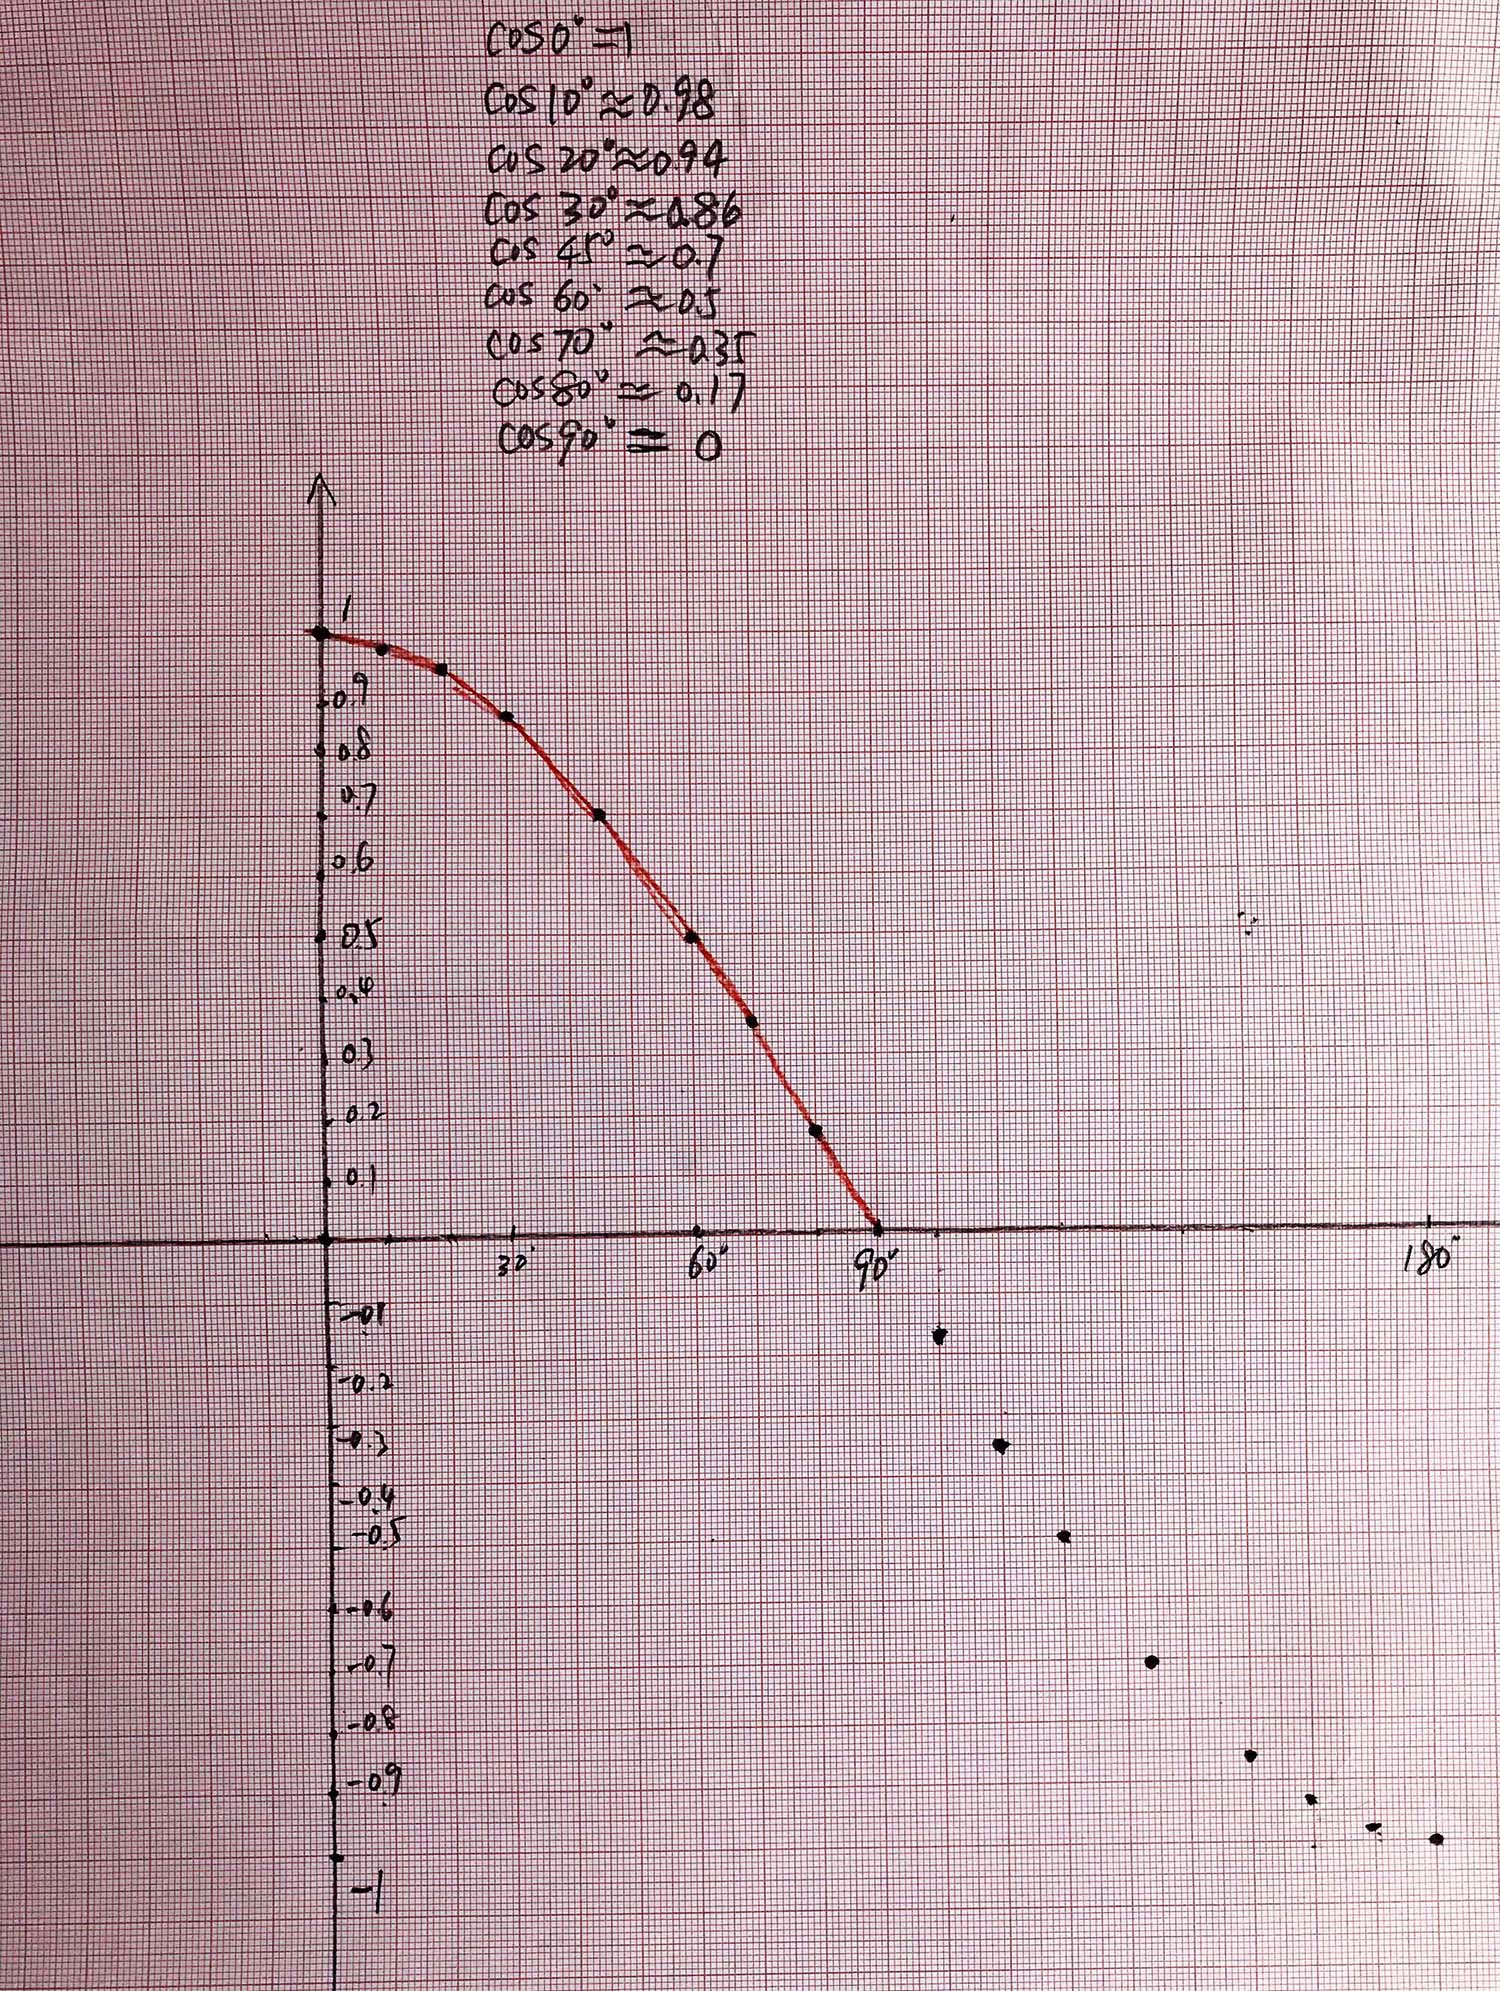 cos0°=1
cos10°≈0.98
cos20°≈0.94
cos 30°≈0.86
cos 45°≈0.7
cos 60°≈0.5
cos70°≈0.35
cos80°≈0.17
cos90°=0
1
0.9
0.8
0.7
0.6
0.5
0.4
0.3
0.2
0.1
30°
60°
90°
180°
-0.1
-0.2
-0.3
-0.4
-0.5
-0.6
-0.7
-0.8
-0.9
-1